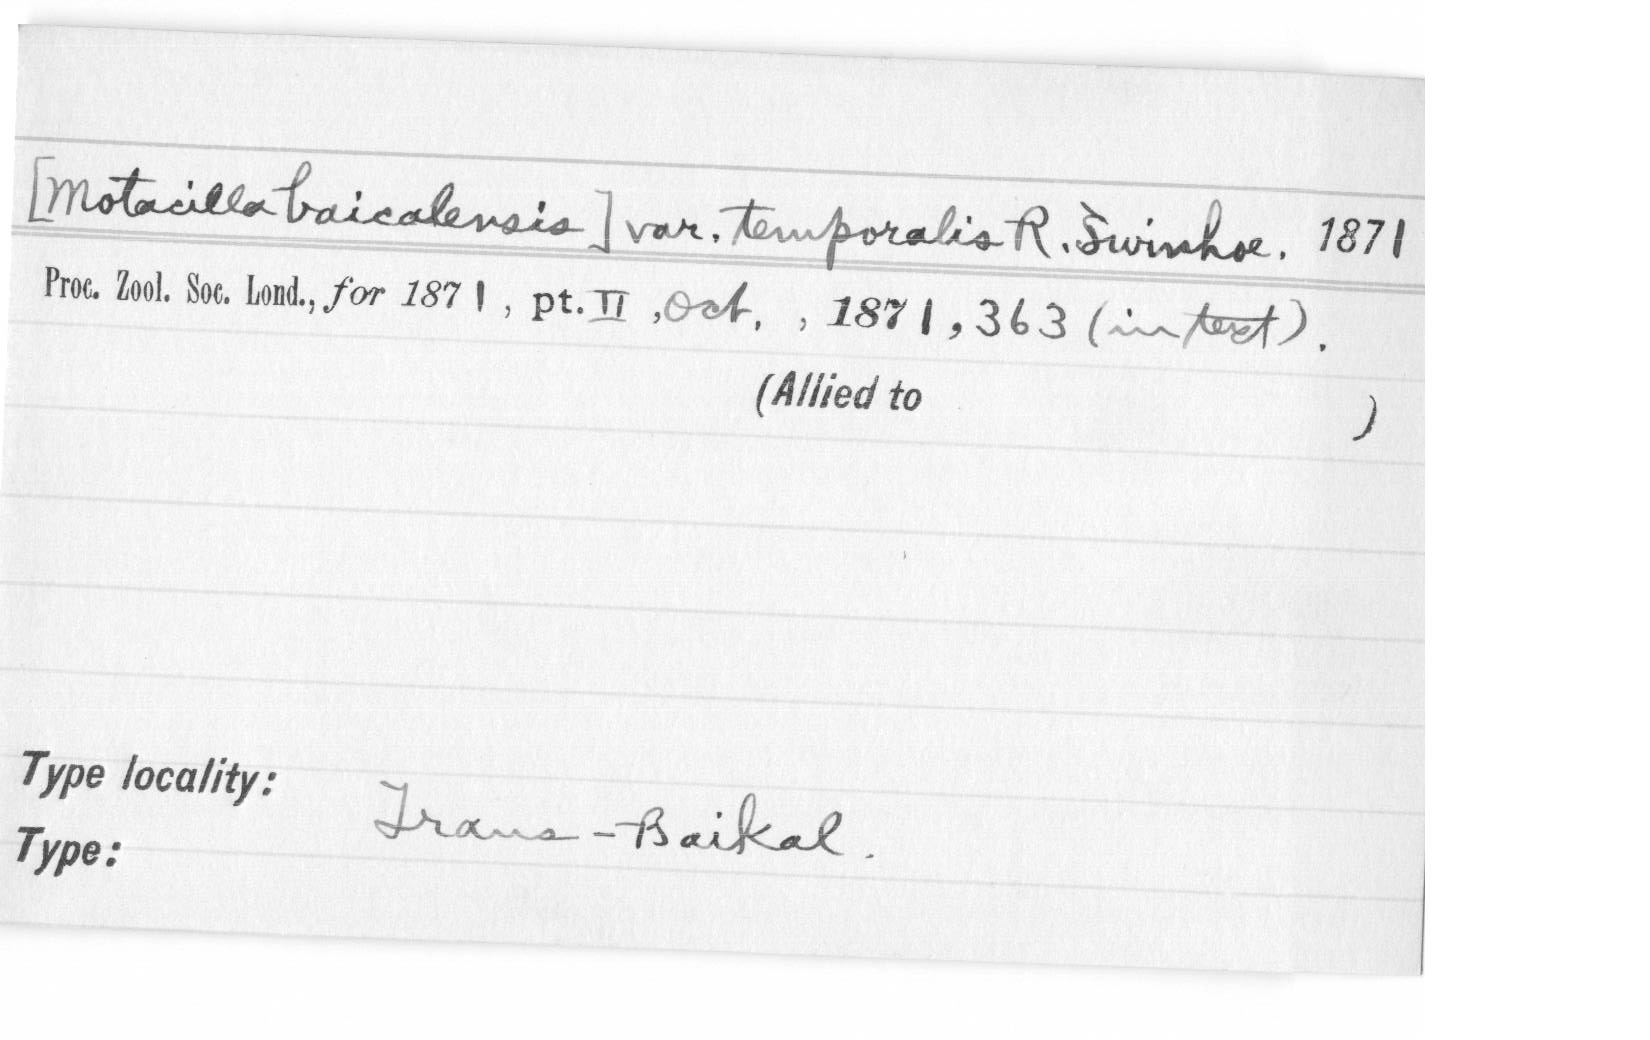 [Motacilla baicalensis] var. temporalis R. Swinhoe. 1871
Proc. Zool. Soc. Lond., for 1871, pt. II, Oct., , 1871, 363 (in text).
(Allied to )
Type locality: Trans-Baikal.
Type: